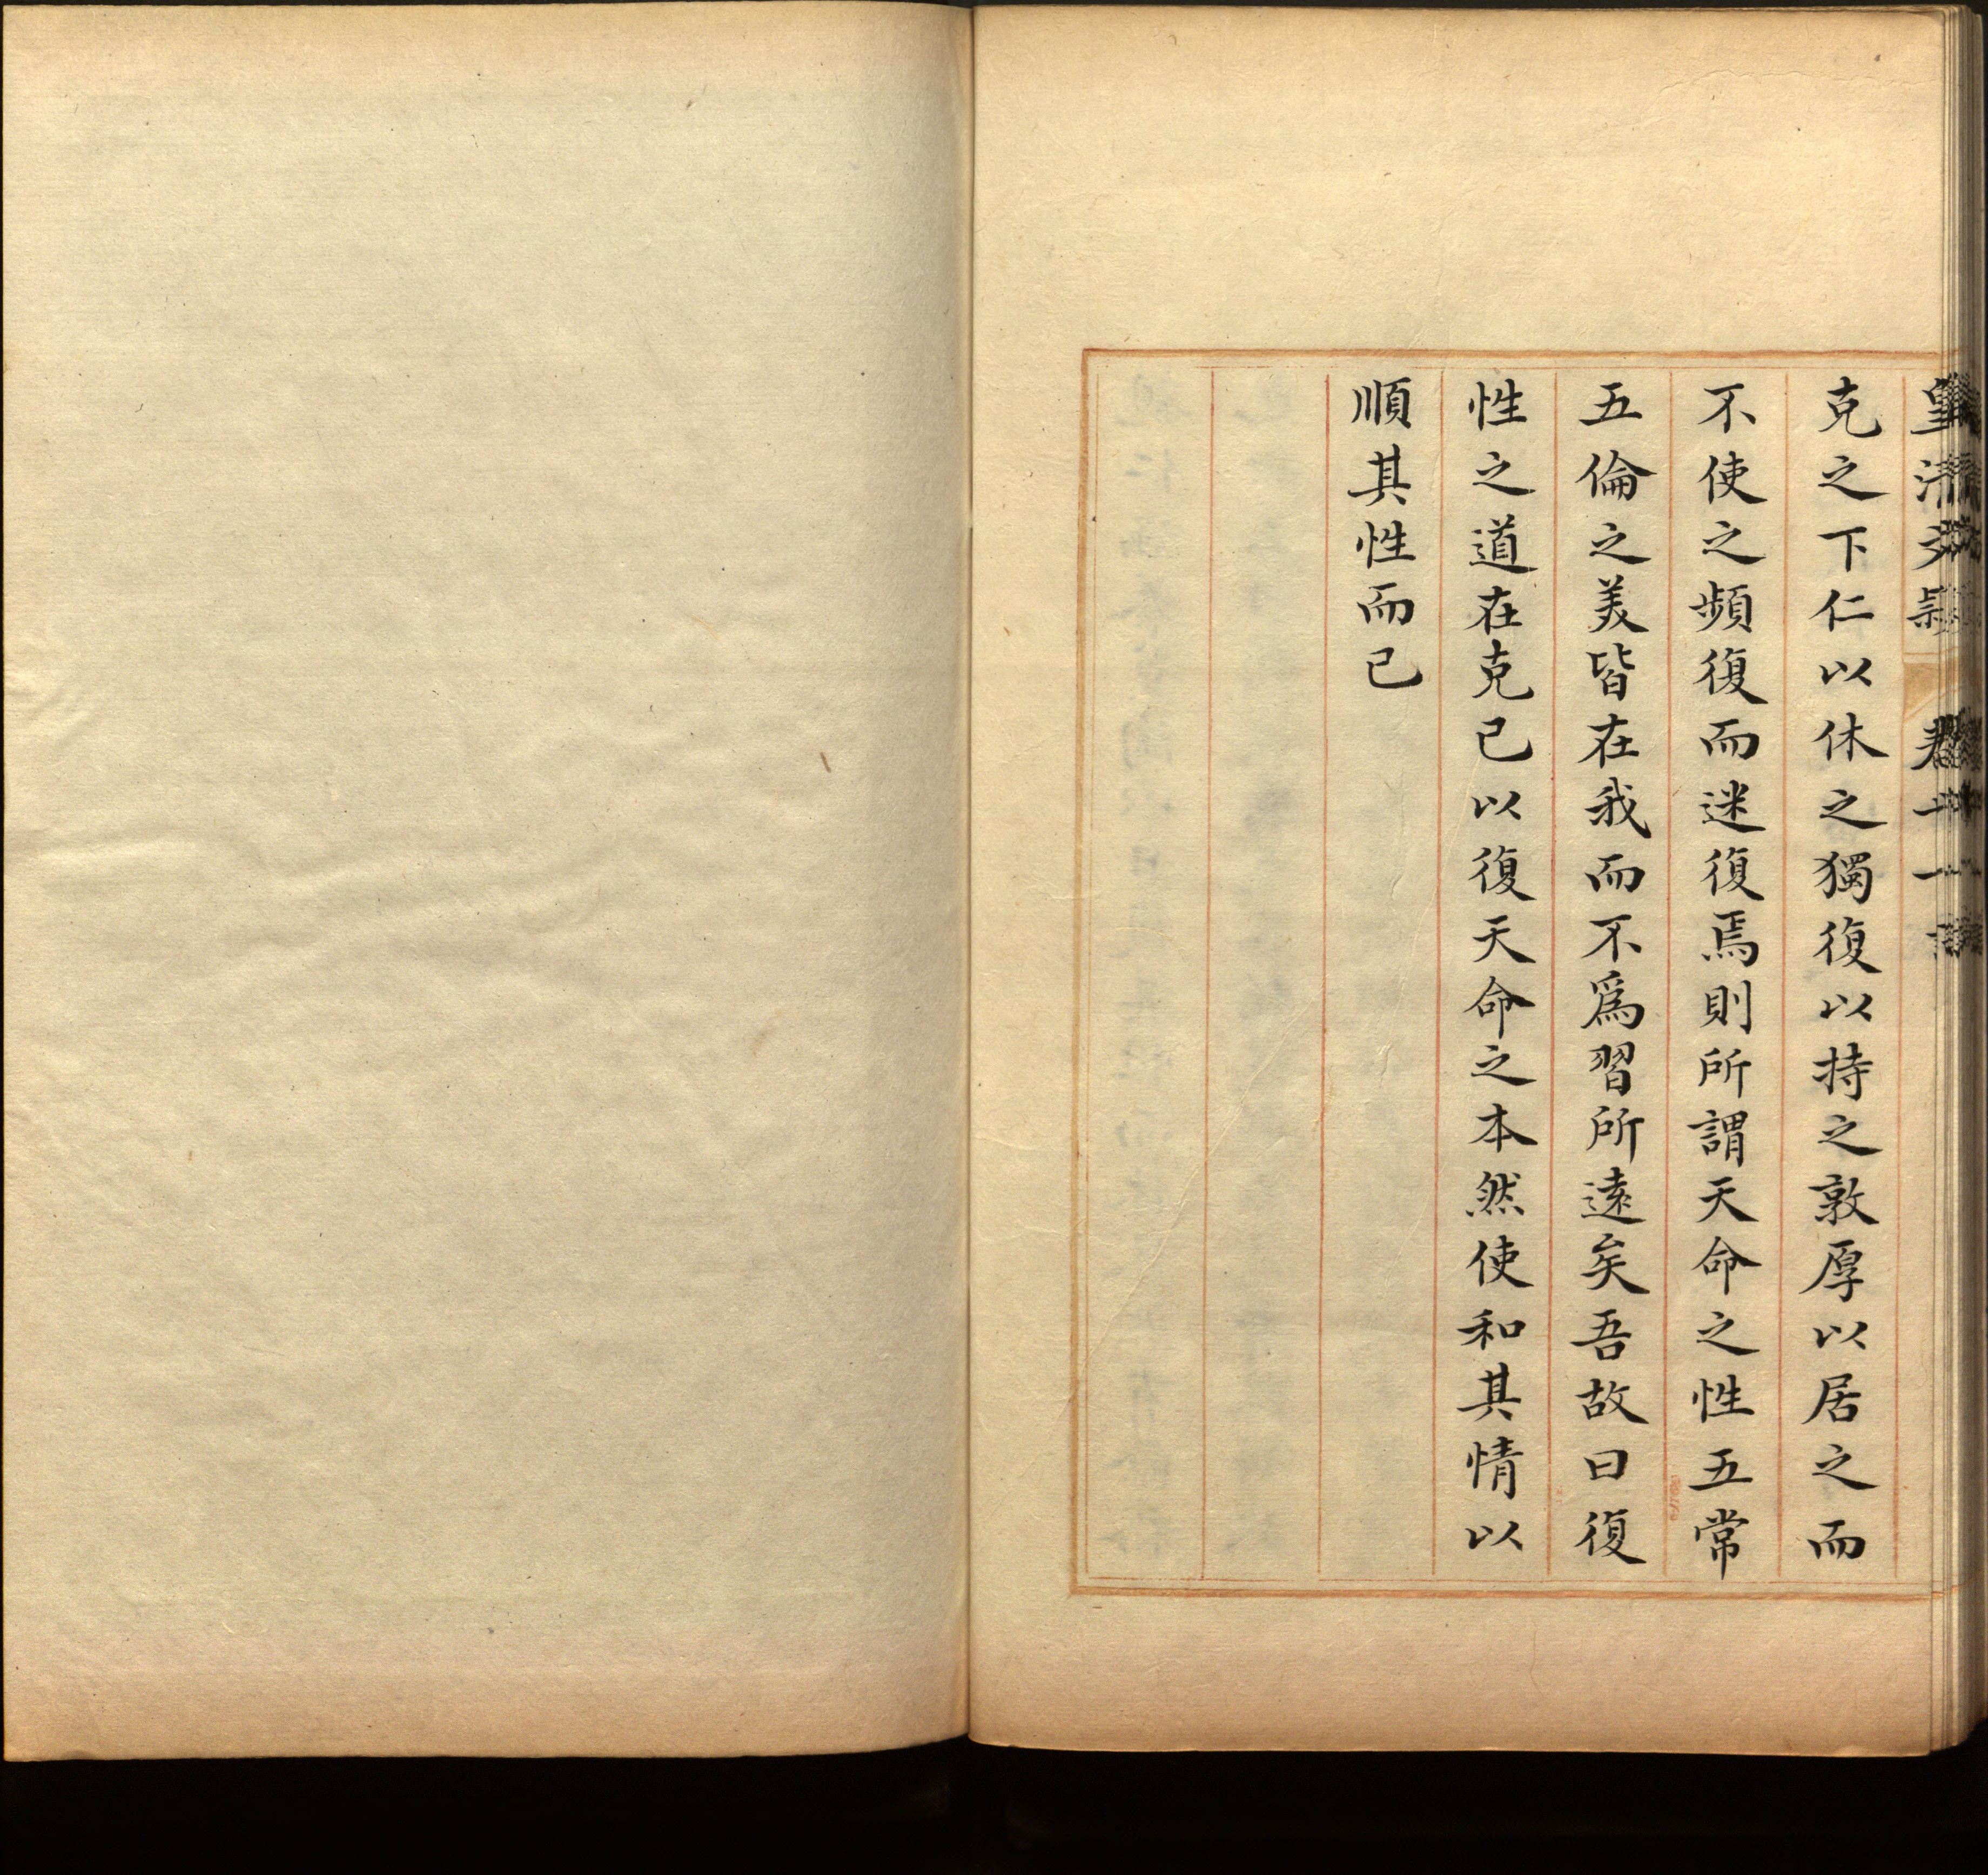 皇清文穎 卷十一
克之下仁以休之獨復以持之敦厚以居之而
不使之頻復而迷復焉則所謂天命之性五常
五倫之美皆在我而不爲習所遠矣吾故曰復
性之道在克己以復天命之本然使和其情以
順其性而已